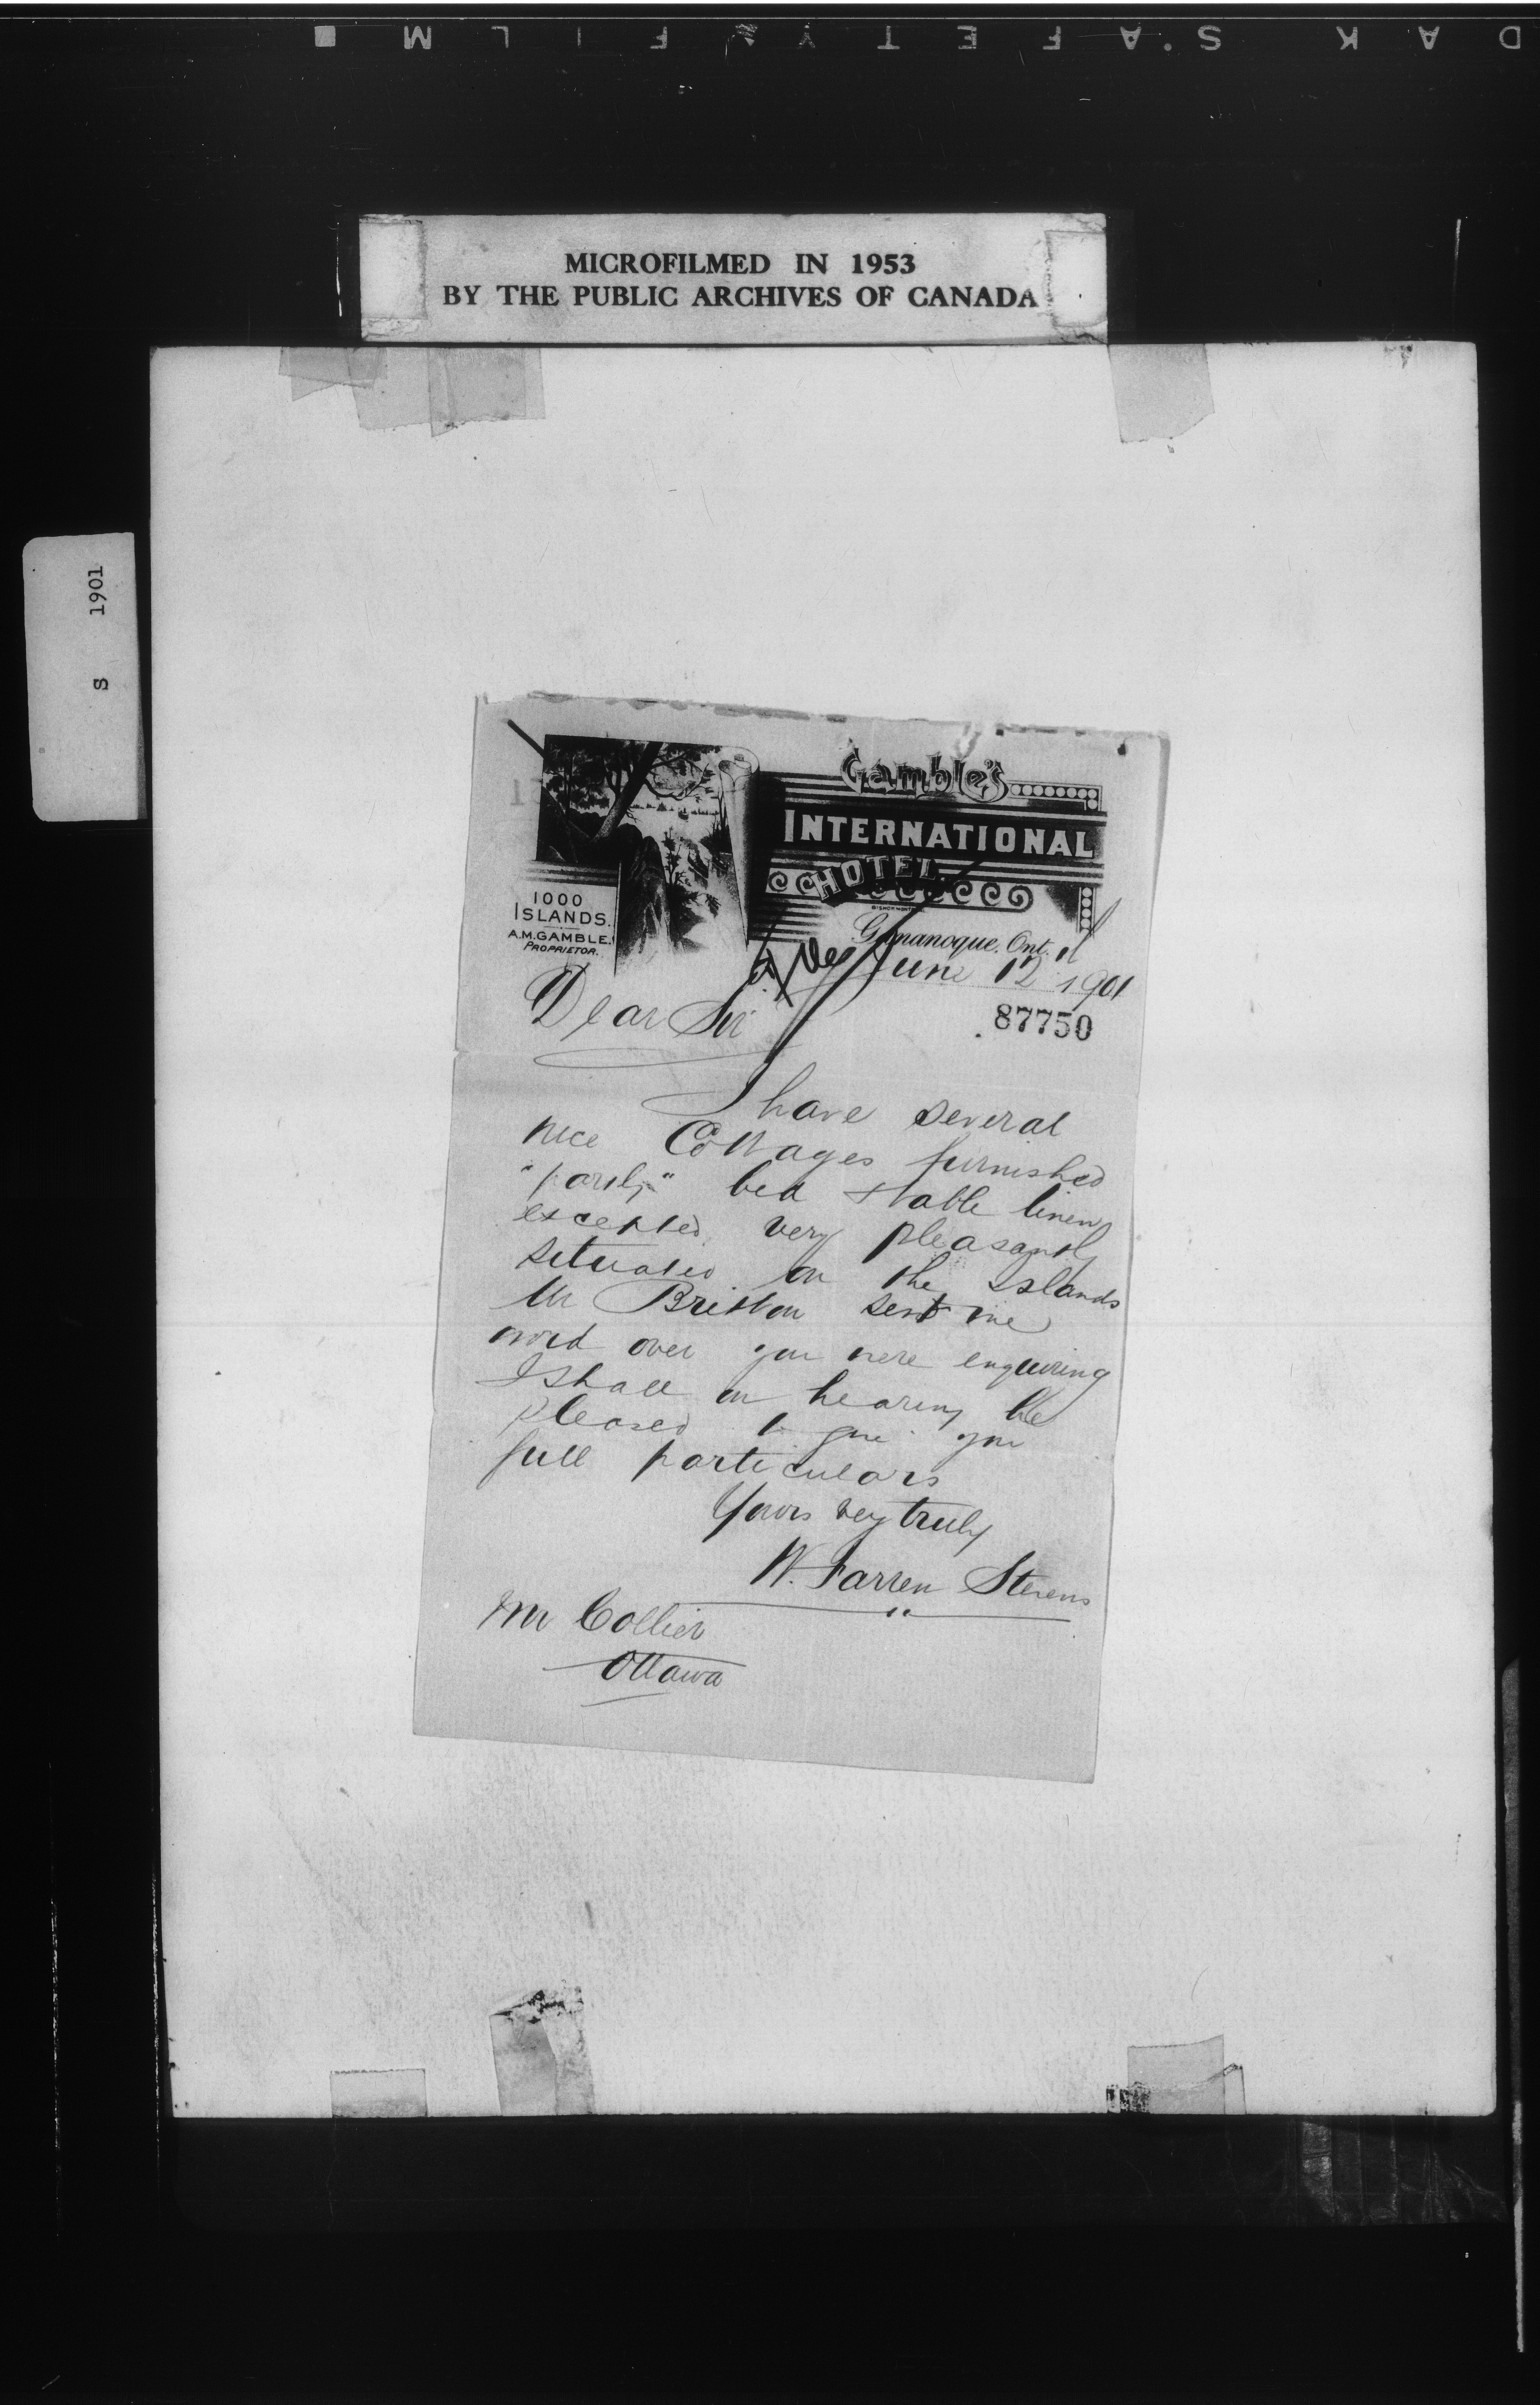 DAK SAFETY FILM
MICROFILMED IN 1953
BY THE PUBLIC ARCHIVES OF CANADA
S 1901
Gamble's
INTERNATIONAL
HOTEL
1000
ISLANDS.
A.M. GAMBLE.
PROPRIETOR.
Gananoque, Ont.
June 12 1901
87750
Dear Sir
I have several
nice Cottages furnished
"partly" bed & table linen
excepted very pleasantly
situated on the Islands
Mr Britton sent me
word over you were enquiring
I shall on hearing be
pleased to give you
full particulars
Yours very truly
W. Farren Stevens
Mr Collier
Ottawa